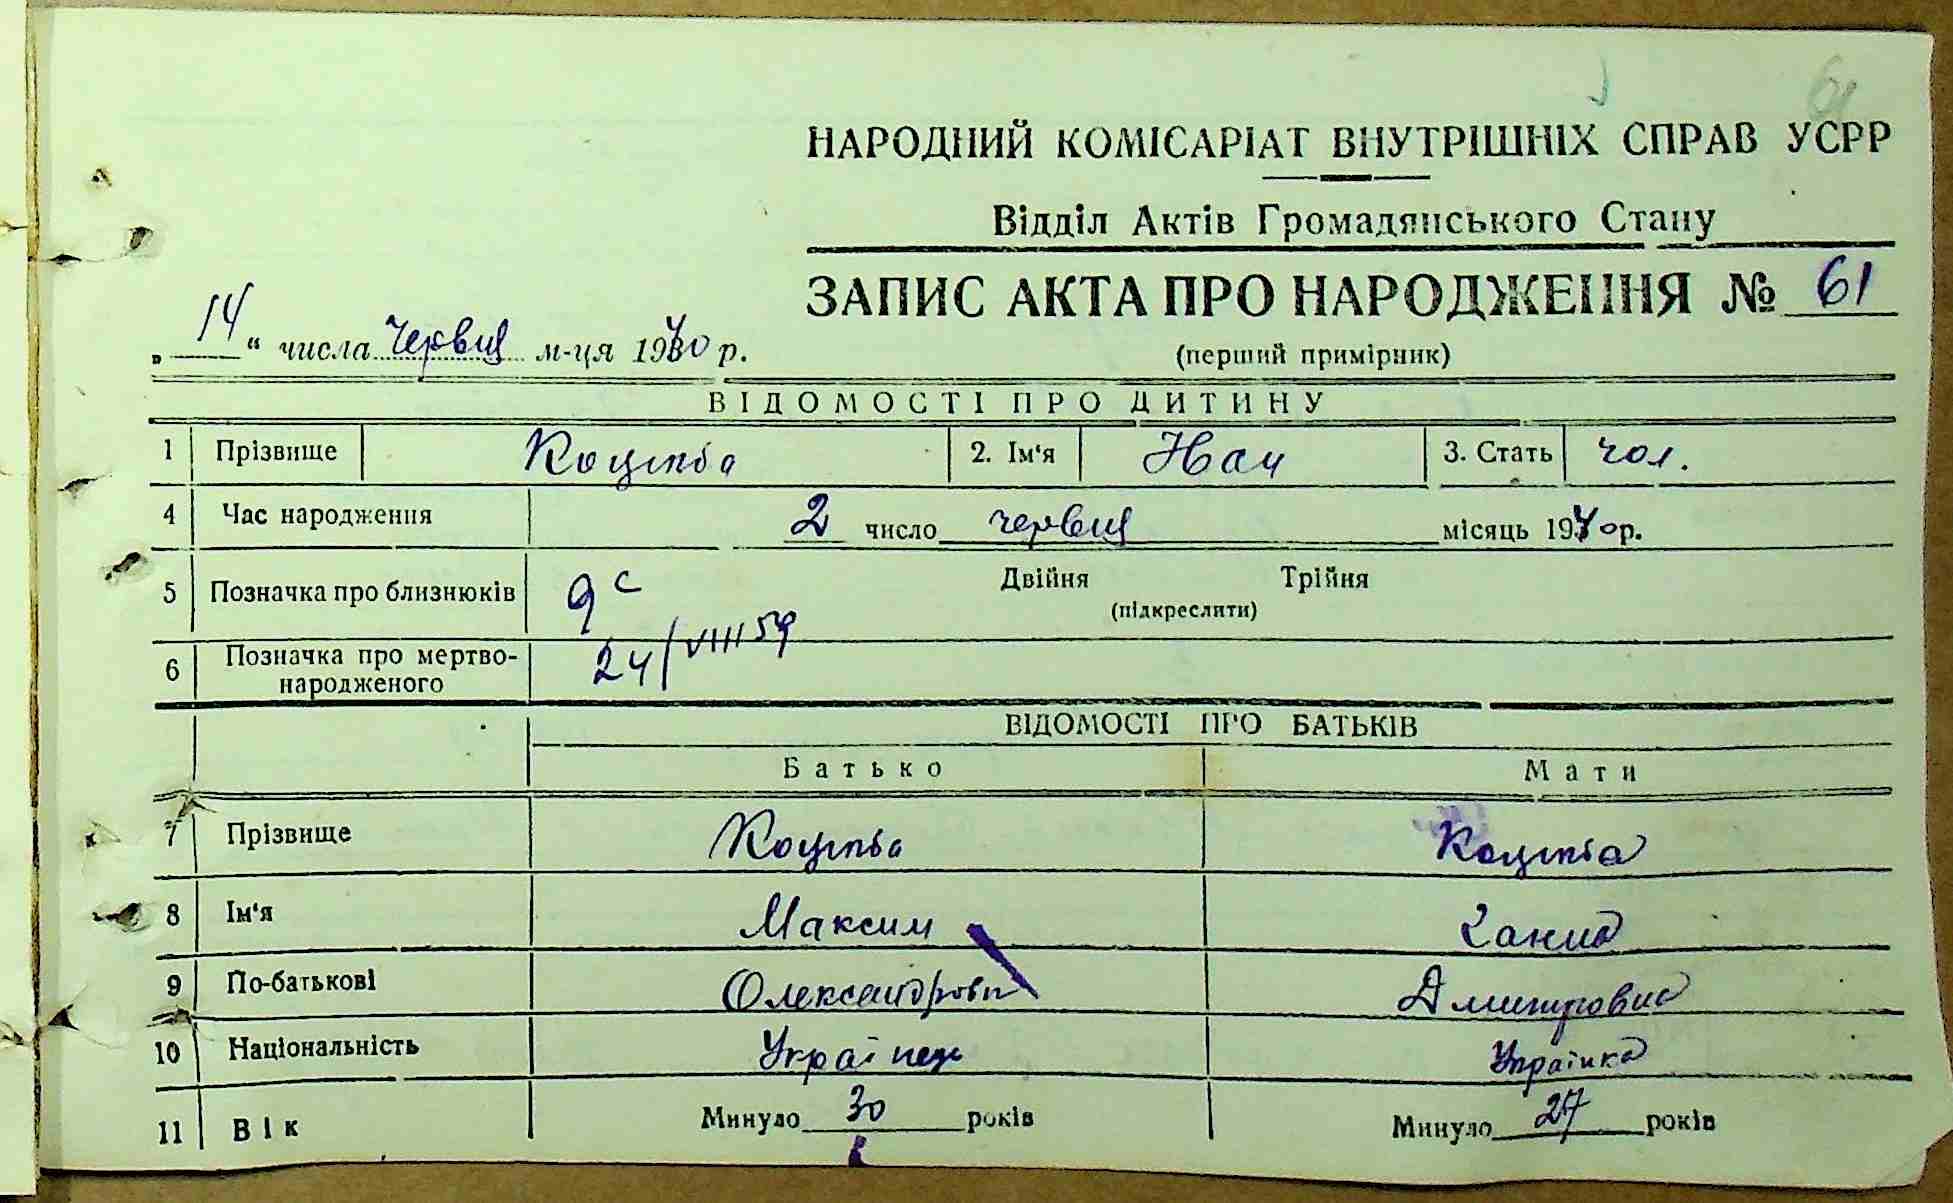 61
НАРОДНИЙ КОМІСАРІАТ ВНУТРІШНІХ СПРАВ УСРР
Відділ Актів Громадянського Стану
ЗАПИС АКТА ПРО НАРОДЖЕННЯ № 61
„ 14 “ числа червня м-ця 1940 р.
(перший примірник)
ВІДОМОСТІ ПРО ДИТИНУ
1 Прізвище Коцюба 2. Ім'я 3. Стать чол.
4 Час народження 2 число червня місяць 1940 р.
5 Позначка про близнюків 9 с Двійня Трійня
(підкреслити)
6 Позначка про мертво-
народженого 24/VIII 59
ВІДОМОСТІ ПРО БАТЬКІВ
Батько Мати
7 Прізвище Коцюба Коцюба
8 Ім'я Максим Ганна
9 По-батькові Олександрович Дмитровна
10 Національність Українець Українка
11 Вік Минуло 30 років Минуло 27 років